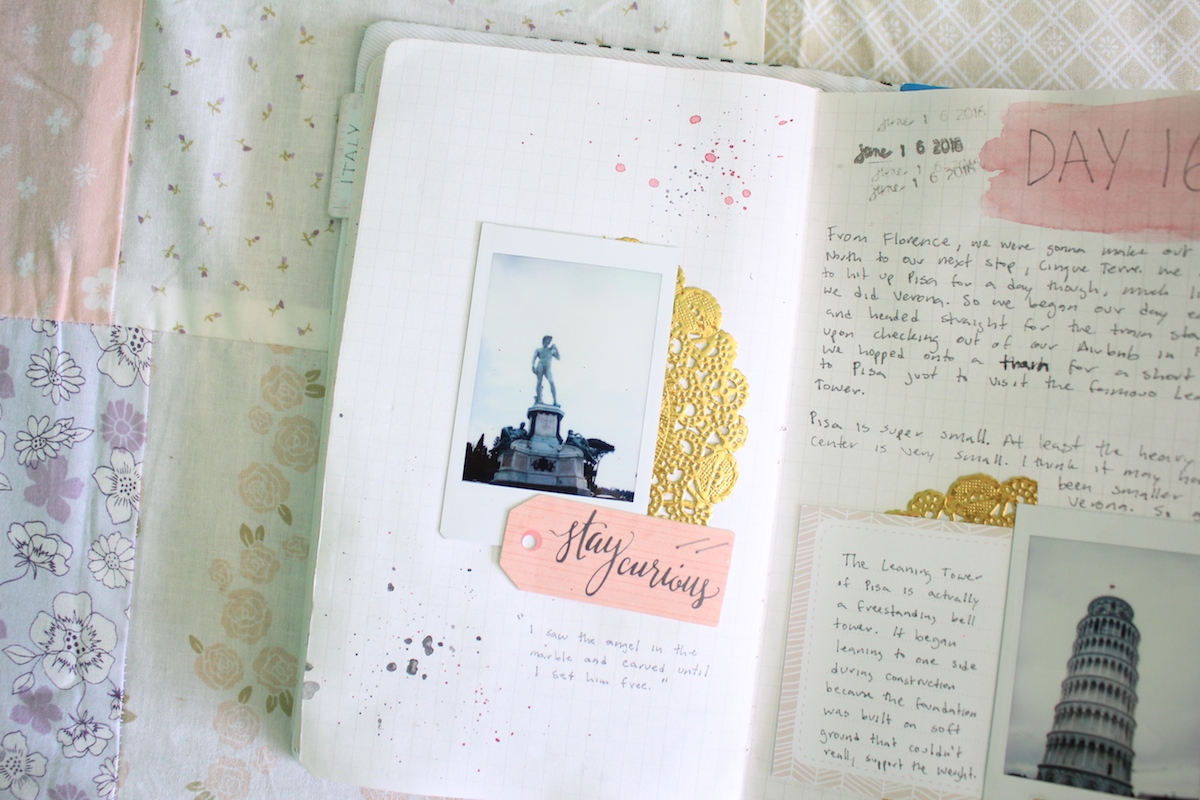 ITALY
stay
curious
"I saw the angel in the
marble and carved until
I set him free."
june 16 2016
june 16 2016
june 16 2016
june 16 2016
DAY 16
From Florence, we were gonna make out
North to our next stop, Cinque Terre. We
to hit up Pisa for a day though, much
we did Verona. So we began our day
and headed straight for the train
upon checking out of our Airbnb in
we hopped onto a train for a short
to Pisa just to visit the famous
Tower.
Pisa is super small. At least the heavy
center is very small. I think it may
been smaller
Verona. So
The Leaning Tower
of Pisa is actually
a freestanding bell
tower. It began
leaning to one side
during construction
because the foundation
was built on soft
ground that couldn't
really support the weight.